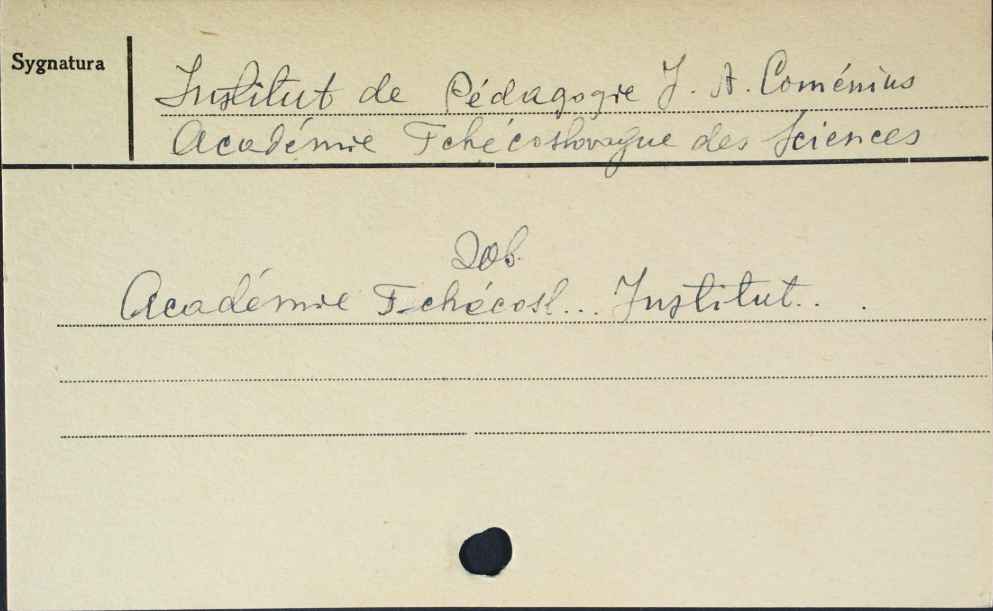 Sygnatura
Institut de Pédagogie J. A. Coménius
Académie Tchécoslovaque des Sciences
Zob.
Académie Tchécosl... Institut...